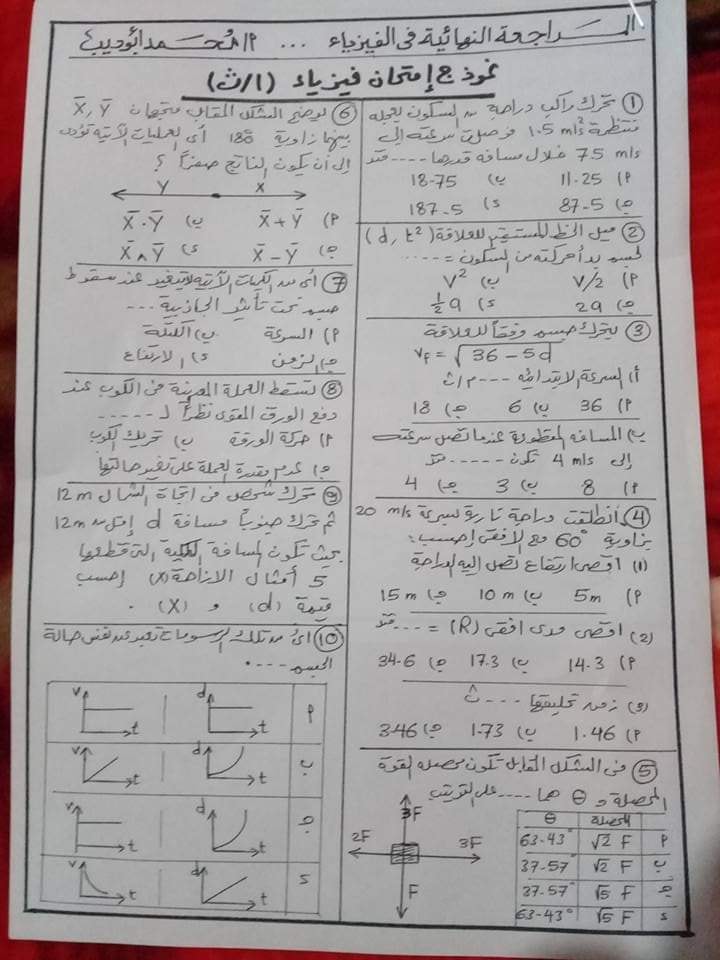 المراجعة النهائية فى الفيزياء ... م/ محمد أبو ديب
نموذج إمتحان فيزياء (١/ث)
① تحرك راكب دراجة من السكون بعجله
منتظمة 1.5 m/s² فوصلت سرعته إلى
7.5 m/s خلال مسافة قدرها ---- متر
٢) 11.25 ب) 18.75
ج) 87.5 د) 187.5
② ميل الخط المستقيم للعلاقة (d, t²)
لجسم بدأ حركته من السكون = ....
٢) V/2 ب) V²
ج) 2a د) ½ a
③ يتحرك جسم وفقاً للعلاقة
Vf = √36 - 5d
أ) السرعة الابتدائيه ---- م/ث
٢) 36 ب) 6 ج) 18
ب) المسافه المقطوعة عندما تصل سرعته
إلى 4 m/s تكون ----- متر
٢) 8 ب) 3 ج) 4
④ انطلقت دراجة نارية بسرعة 20 m/s
بزاوية 60° مع الأفقى إحسب:
(1) أقصى ارتفاع تصل إليه الدراجة
٢) 5m ب) 10 m ج) 15 m
(2) اقصى مدى افقى (R) = ---- متر
٢) 14.3 ب) 17.3 ج) 34.6
(3) زمن تحليقها ---- ث
٢) 1.46 ب) 1.73 ج) 3.46
⑤ فى الشكل المقابل تكون محصله القوة
المحصلة و θ هما ---- على الترتيب
3F
2F 3F
F
المحصلة θ
٢ √2 F 63.43°
ب √2 F 37.57°
ج √5 F 37.57°
د √5 F 63.43°
⑥ يوضح الشكل المقابل متجهان X̄, Ȳ
بينهما زاوية 180° أى العمليات الآتية تؤدى
إلى أن يكون الناتج صفراً ؟
Y X
٢) X̄ + Ȳ ب) X̄ . Ȳ
ج) X̄ - Ȳ د) X̄ ∧ Ȳ
⑦ أى من الكميات الآتية لا يتغير عند سقوط
جسم تحت تأثير الجاذبية ...
٢) السرعة ب) الكتلة
ج) الزمن د) الارتفاع
⑧ تسقط العملة المعدنية فى الكوب عند
دفع الورق المقوى نظراً لـ -----
٢) حركة الورقة ب) تحريك الكوب
ج) عدم مقدرة العملة على تغير حالتها
⑨ تحرك شخص فى اتجاة الشمال 12m
ثم تحرك جنوباً مسافة d إقل من 12m
بحيث تكون المسافة الكلية التى قطعها
5 أمثال الازاحة (X) إحسب
قيمة (d) و (X) .
⑩ أى من تلك الرسومات تعبر عن نفس حالة
الجسم ----
٢ d t v t
ب d t v t
ج d t v t
د d t v t